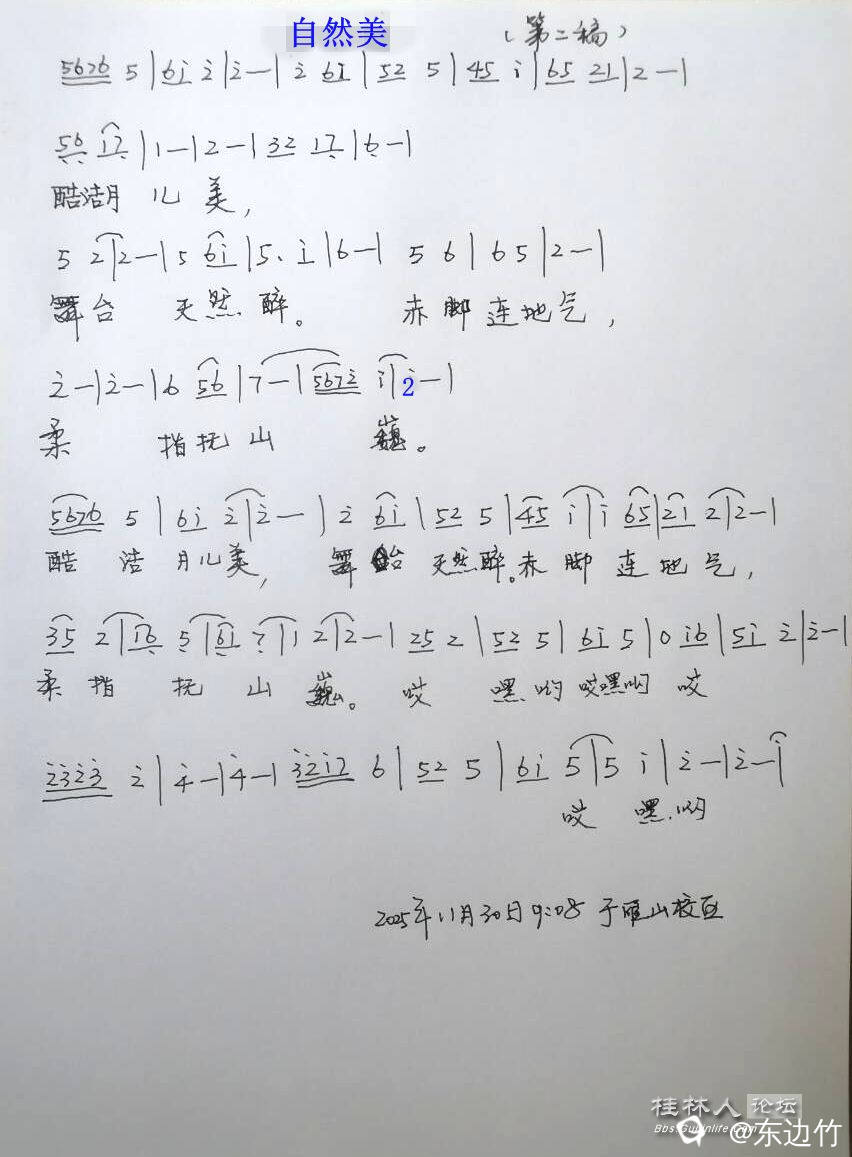 自然美 (第二稿)
5676 5 | 6i 2̇ | 2̇ — | 2̇ 6i | 52 5 | 45 i | 65 21 | 2 — |
56 17 | 1 — | 2 — | 32 17 | 6 — |
酷洁月儿美,
5 2 | 2 — | 5 6i | 5. i | 6 — | 5 6 | 65 | 2 — |
舞台天然醉。赤脚连地气,
2̇ — | 2̇ — | 6 56 | 7 — | 5672̇ i | 2 — |
柔指抚山巍。
5676 5 | 6i 2̇ | 2̇ — | 2̇ 6i | 52 5 | 45 i | i 65 | 21 2 | 2 — |
酷洁月儿美,舞台天然醉。赤脚连地气,
35 2 | 16 5 | 61 7 | 1 2 | 2 — | 25 2 | 52 5 | 6i 5 | 0 i6 | 5i 2̇ | 2̇ — |
柔指抚山巍。哎嘿哟哎嘿哟哎
2̇3̇2̇3̇ 2̇ | 4̇ — | 4̇ — | 3̇2̇i7 6 | 52 5 | 6i 5 | 5 i | 2̇ — | 2̇ — |
哎嘿哟
2025年11月30日9:08于雁山校区
桂林人论坛
Bbs.Guilinlife.Com
@东边竹